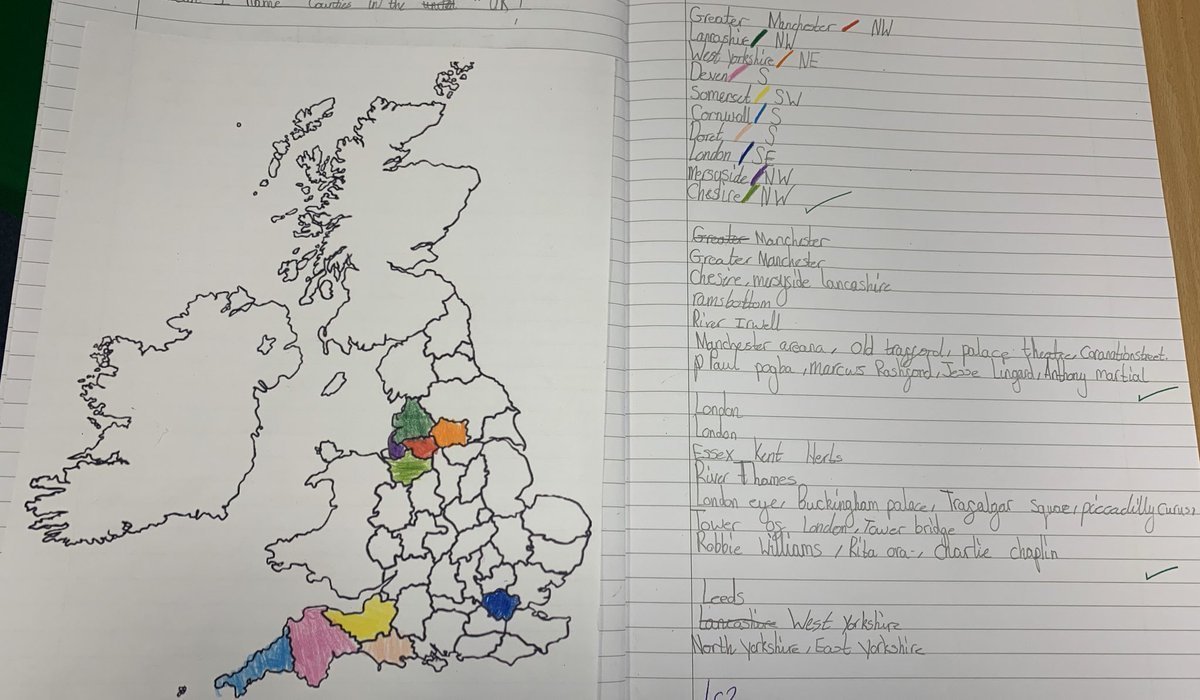 name Counties in the UK
Greater Manchester NW
Lancashire NW
West Yorkshire NE
Deven S
Somerset SW
Cornwall S
Doret S
London SE
Mersyside NW
Chesire NW
Greater Manchester
Greater Manchester
Chesire, mersyside lancashire
ramsbottom
River Irwell
Manchester areana, Old trafford, palace theatre, Coranationstreet.
Paul pogba, Marcus Rashford, Jesse Lingard, Anthony martial
London
London
Essex Kent Herbs
River Thames
London eye, Buckingham palace, Trafalgar Squae, piccadilly
Tower of London, Tower bridge
Robbie Williams, Rita ora, Charlie chaplin
Leeds
Lancashire West Yorkshire
North Yorkshire, East Yorkshire